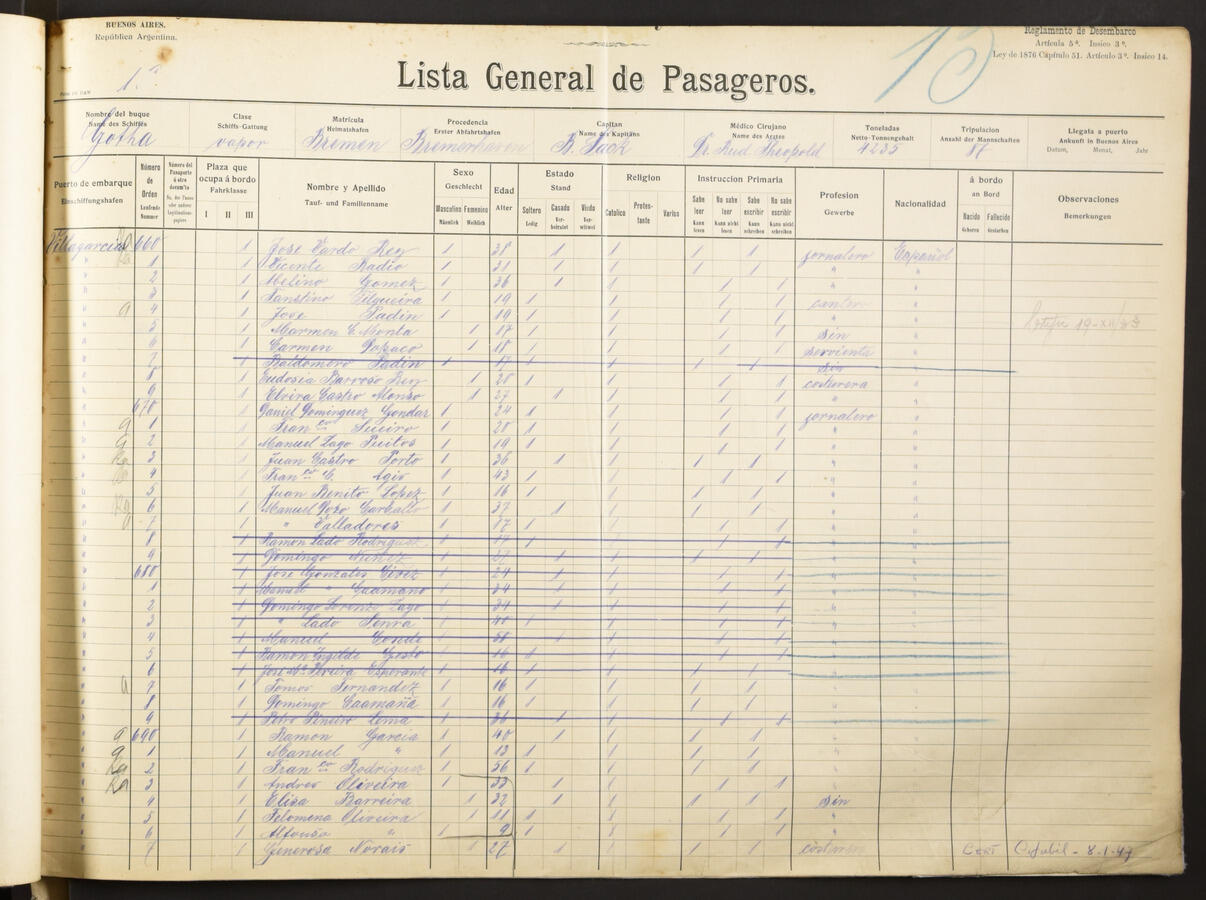 BUENOS AIRES.
República Argentina.
Reglamento de Desembarco
Artícula 5º. Insico 3º.
Ley de 1876 Cápitulo 51. Artículo 3º. Insico 14.
13
1.ª
Lista General de Pasageros.
Nombre del buque Name des Schiffes Gotha
Clase Schiffs-Gattung vapor
Matrícula Heimatshafen Bremen
Procedencia Erster Abfahrtshafen Bremerhaven
Capitan Name des Kapitäns
Médico Cirujano Name des Arztes Dr. Rud. Theopold
Toneladas Netto-Tonnengehalt 4235
Tripulacion Anzahl der Mannschaften 87
Llegata a puerto Ankunft in Buenos Aires Datum, Monat, Jahr
Puerto de embarque Einschiffungshafen
Número de Orden Laufende Nummer
Plaza que ocupa á bordo Fahrklasse I II III
Nombre y Apellido Tauf- und Familienname
Sexo Geschlecht Masculino Männlich Femenino Weiblich
Edad Alter
Estado Stand Soltero Ledig Casado Verheiratet Viudo Verwitwet
Religion Catolico Protestante Varios
Instruccion Primaria Sabe leer Kann lesen No sabe leer Kann nicht lesen Sabe escribir Kann schreiben No sabe escribir Kann nicht schreiben
Profesion Gewerbe
Nacionalidad
á bordo an Bord Nacido Geboren Fallecido Gestorben
Observaciones Bemerkungen
Villagarcia 660 1 Jose Pardo Rey 1 38 1 1 1 1 jornalero Español
" 1 1 Vicente Padio 1 31 1 1 1 1 " "
" 2 1 Abelino Gomez 1 36 1 1 1 1 "
" 3 1 Faustino Filgueira 1 19 1 1 1 1 cantero "
" 4 1 Jose Padin 1 19 1 1 1 1 " "
" 5 1 Carmen C. Monta 1 17 1 1 1 1 sin "
" 6 1 Carmen 1 18 1 1 1 1 servienta "
" 7 1 Baldomero Padin 1 17 1 1 1 1 sin "
" 8 1 Eudosia Barroso Rey 1 20 1 1 1 1 costurera "
" 9 1 Elvira Castro Alonso 1 27 1 1 1 1 " "
" 670 1 Daniel Dominguez Gondar 1 24 1 1 1 1 jornalero "
" 1 1 Fran.co Sueiro 1 20 1 1 1 1 " "
" 2 1 Manuel Lago Puitos 1 19 1 1 1 1 " "
" 3 1 Juan Castro Porto 1 36 1 1 1 1 " "
" 4 1 Fran.co C. Agio 1 43 1 1 1 1 " "
" 5 1 Juan Benito Lopez 1 16 1 1 1 1 " "
" 6 1 Manuel Pozo Carballo 1 37 1 1 1 1 " "
" 7 1 " Valladores 1 17 1 1 1 1 " "
" 8 1 Ramon Lado Rodriguez 1 17 1 1 1 1 " "
" 9 1 Domingo Nuñez 1 27 1 1 1 1 " "
" 680 1 Jose Gonzales 1 24 1 1 1 1 " "
" 1 1 Manuel " Caamano 1 34 1 1 1 1 " "
" 2 1 Domingo Lorenzo Lago 1 34 1 1 1 1 " "
" 3 1 " Lado Senra 1 40 1 1 1 1 " "
" 4 1 Manuel Conde 1 58 1 1 1 1 " "
" 5 1 Ramon Ingilde Gesto 1 16 1 1 1 1 " "
" 6 1 Jose Mª Pereira 1 16 1 1 1 1 " "
" 7 1 Tomas Fernandez 1 16 1 1 1 1 " "
" 8 1 Domingo Caamaña 1 16 1 1 1 1 " "
" 9 1 Petro Pineiro Lema 1 36 1 1 1 1 " "
" 690 1 Ramon Garcia 1 40 1 1 1 1 " "
" 1 1 Manuel " 1 13 1 1 1 1 " "
" 2 1 Fran.co Rodriguez 1 56 1 1 1 1 " "
" 3 1 Andres Oliveira 1 33 1 1 1 1 " "
" 4 1 Elisa Barreira 1 32 1 1 1 1 sin "
" 5 1 Felomena Oliveira 1 11 1 1 1 1 " "
" 6 1 Alfonso " 1 9 1 1 1 1 " "
" 7 1 Generosa Novais 1 27 1 1 1 1 costurera " Cert C. Jubil - 8-1-47